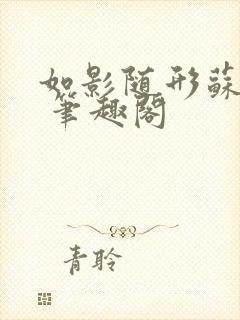 如影随形蘇
笔趣阁
青聆